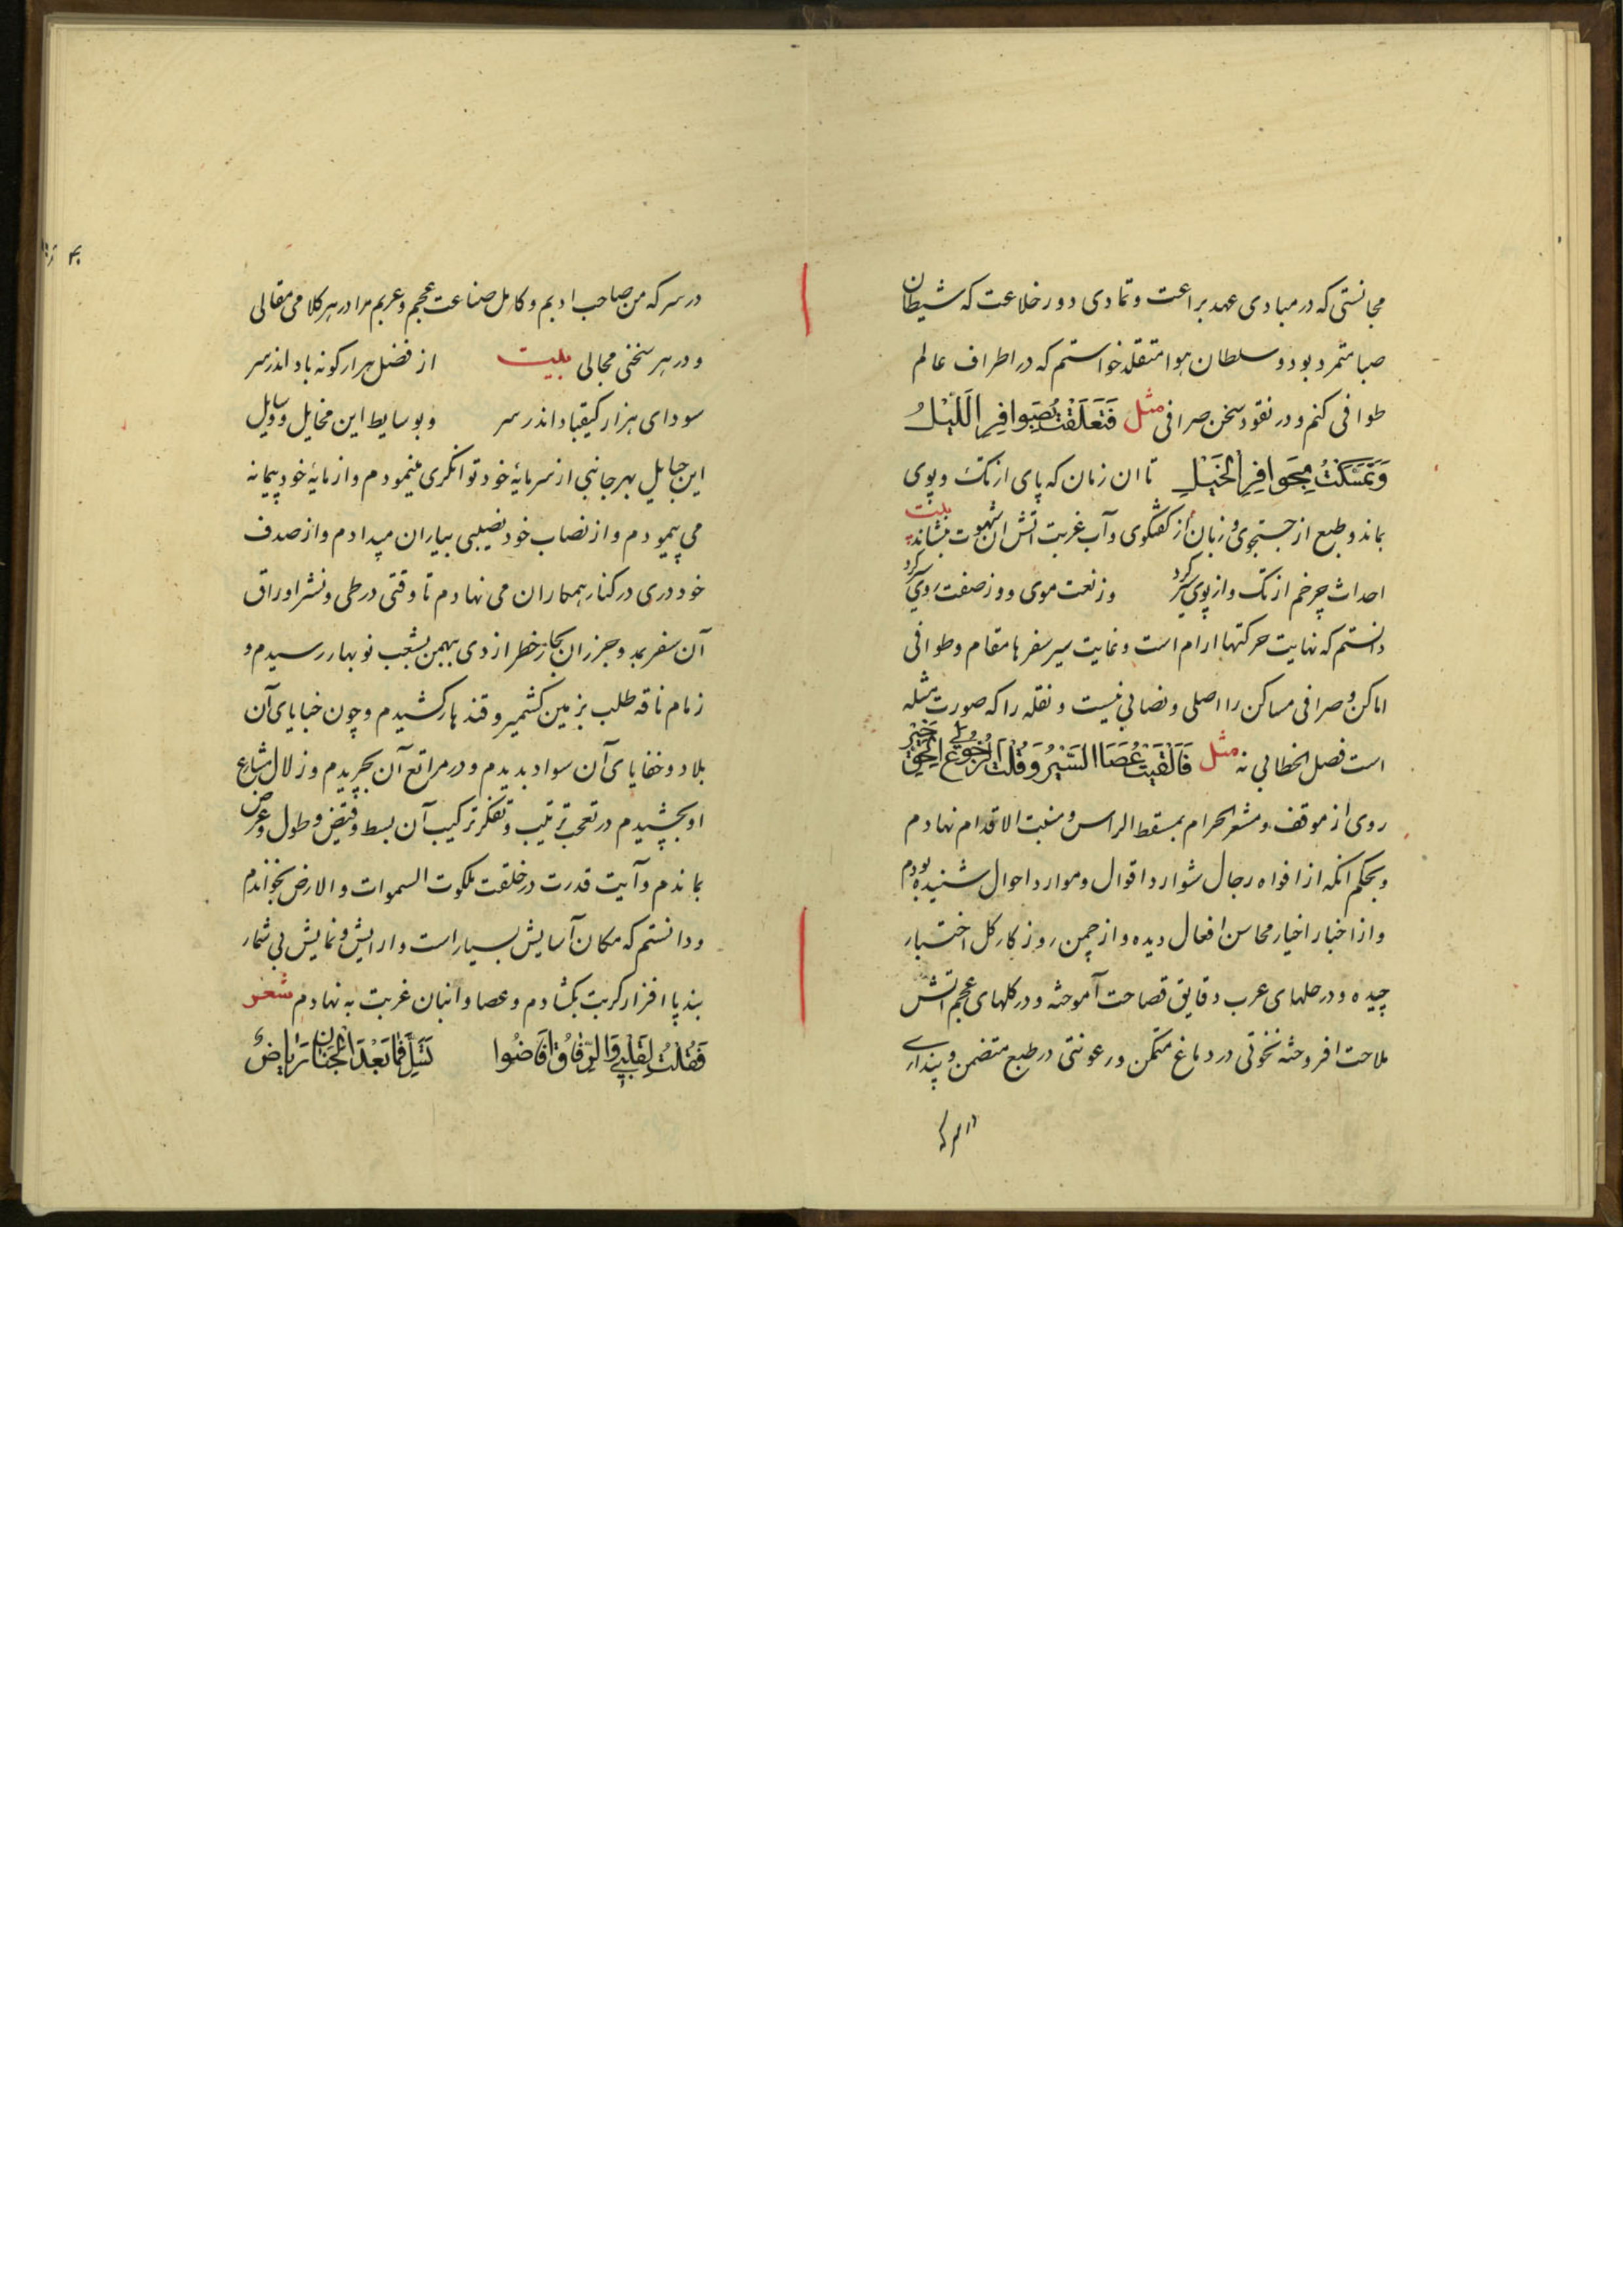 مجانستی که در مبادی عهد براعت و تمادی دور خلاعت که شیطان
صبا متمرد بود و سلطان هوا متقلد خواستم که در اطراف عالم
طوافی کنم و در نقود سخن صرافی مثل فَتَعَلَّقْتُ بِصَوافِرِ اللَّیْلِ
وَتَمَسَّکْتُ بِحَوافِرِ الْخَیْلِ تا ان زمان که پای از تک و پوی
بماند و طبع از جستجوی و زبان از گفتگوی و آب غربت آتش ان شهوت بنشاند بیت
احداث چرخم از تک و از پوی سرد کرد وز نعت موی و وز صفت روی سرد کرد
دانستم که نهایت حرکتها ارام است و غایت سیر سفرها مقام و طوافی
اماکن و صرافی مساکن را اصلی و نصابی نیست و نقله را که صورت مثله
است فصل الخطابی نه مثل فَاَلْقَیْتُ عَصَا السَّیْرِ وَقُلْتُ الرُّجُوعُ اِلَی الْحَقِّ خَیْرٌ
روی از موقف و مشعر الحرام بمسقط الراس و منبت الاقدام نهادم
و بحکم انکه از افواه رجال شوارد اقوال و موارد احوال شنیده بودم
و از اخبار اخیار محاسن افعال دیده و از چمن روزکار کل اختیار
چیده و در حلهای عرب دقایق فصاحت آموخته و در کلهای عجم آتش
ملاحت افروخته نخوتی در دماغ متمکن و رعونتی در طبع متضمن و پنداری
در سر که
در سر که من صاحب ادیم و کامل صناعت عجم و عربم مرا در هر کلامی مقالی
و در هر سخنی مجالی بیت از فضل هزار کونه باد اندر سر
سودای هزار کیقباد اندر سر و بوسایط این مخایل و وسایل
این حبایل بهر جانبی از سرمایهٔ خود توانکری مینمودم و از مایهٔ خود پیمانه
می پیمودم و از نصاب خود نصیبی بیاران میدادم و از صدف
خود دری در کنار همکاران می نهادم تا وقتی در طی و نشر اوراق
آن سفر بمد و جزر ان بحار خطر از دی بهمن بشعب نوبهار رسیدم و
زمام ناقه طلب بزمین کشمیر و قندهار کشیدم و چون خبایای آن
بلاد و خفایای آن سواد بدیدم و در مراتع آن بچریدم و زلال مشارع
او بچشیدم در تعجب ترتیب و تفکر ترکیب آن بسط و قبض و طول و عرض
بماندم و آیت قدرت در خلقت ملکوت السموات و الارض بخواندم
و دانستم که مکان آسایش بسیار است و ارایش و نمایش بی شمار
بند پا افزار کربت بکشادم و عصا و انبان غربت به نهادم شعر
فَقُلْتُ لِقَلْبِی وَالرِّفَاقُ اَفَاضُوا تَسَلَّ فَمَا بَعْدَ الْجِنَانِ رِیَاضٌ